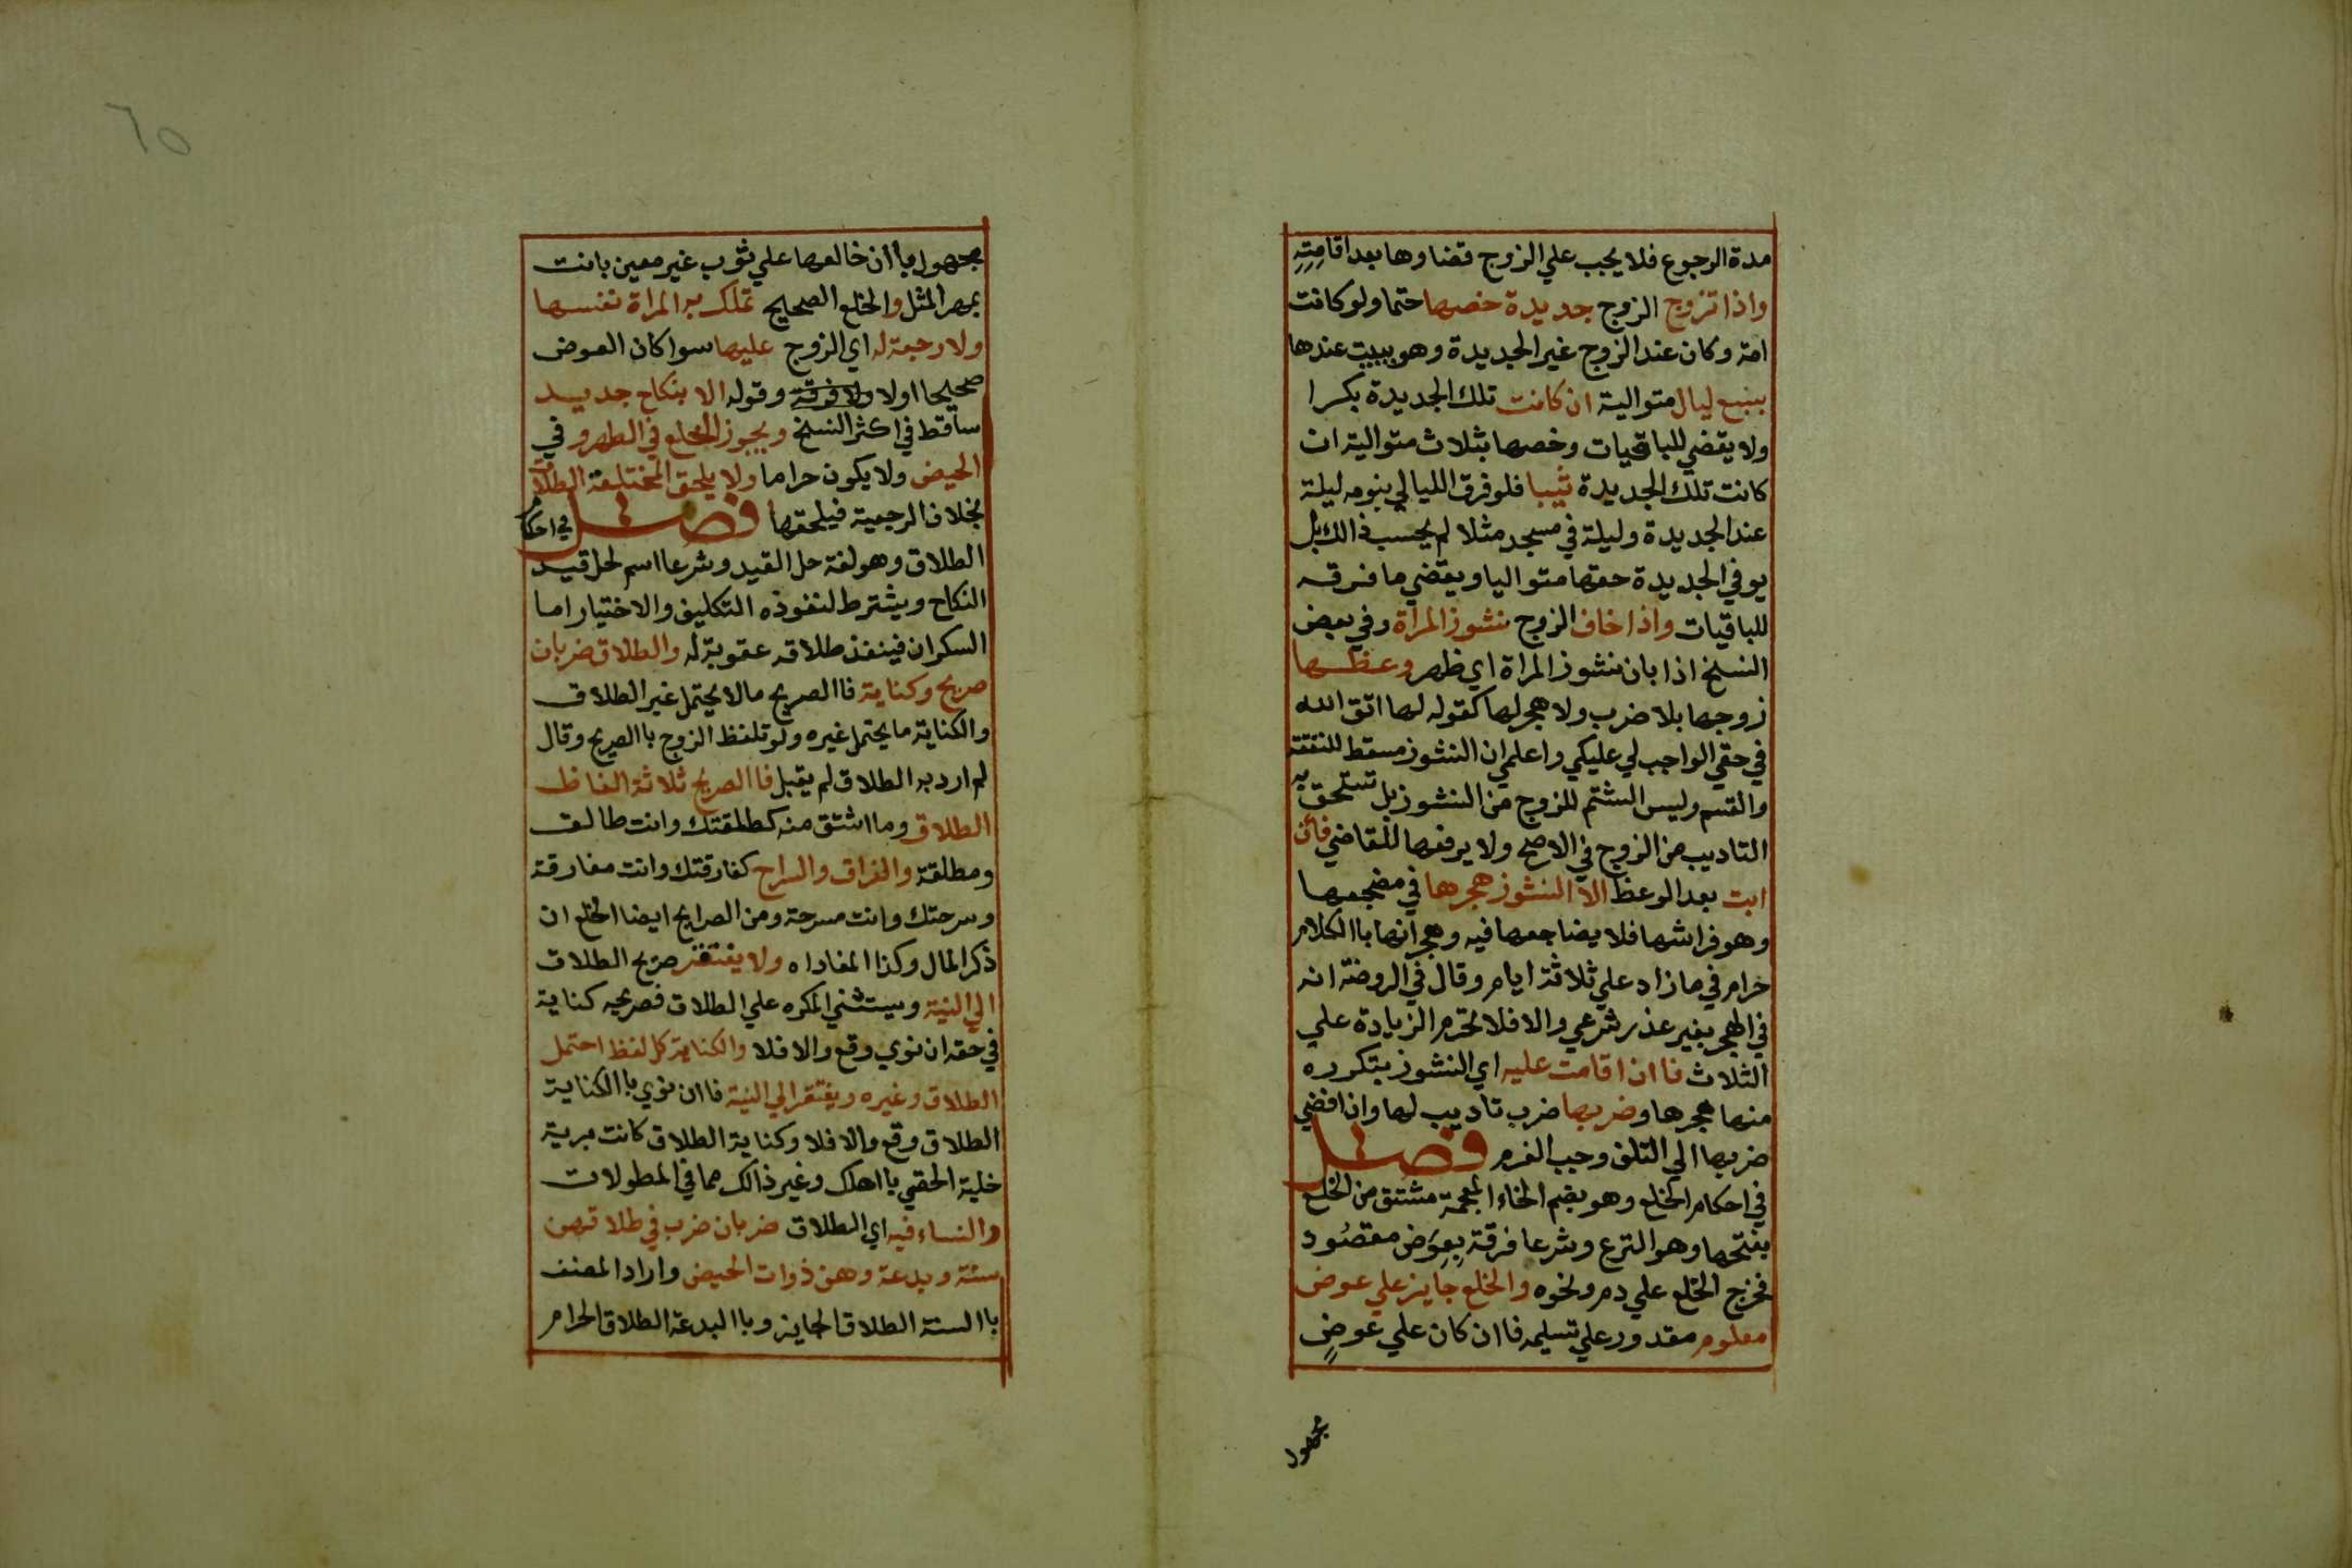 مدة الرجوع فلا يجب علي الزوج قضاوها بعد اقامِتِهِ
واذا تزوج الزوج جديدة خصها حتما ولو كانت
امة وكان عند الزوج غير الجديدة وهو يبيت عندها
بسبع ليال متوالية ان كانت تلك الجديدة بكرا
ولا يقضي للباقيات وخصها بثلاث متوالية ان
كانت تلك الجديدة ثيبا فلو فرق الليالي بنومه ليلة
عند الجديدة وليلة في مسجد مثلا لم يحسب ذالك بل
يوفي الجديدة حقها متواليا ويقضي ما فرقه
للباقيات واذا خاف الزوج نشوز المراة وفي بعض
النسخ اذا بان نشوز المراة اي ظهر وعظها
زوجها بلا ضرب ولا هجر لها كقوله لها اتق الله
في حقي الواجب لي عليكي واعلمي ان النشوز مسقط للنفقة
والقسم وليس الشتم للزوج من النشوز بل تستحق به
التاديب من الزوج في الاصح ولا يرفعها للقاضي فاان
ابت بعد الوعظ الا النشوز هجرها في مضجعها
وهو فراشها فلا يضاجعها فيه وهجرانها باالكلام
حرام في ما زاد علي ثلاثة ايام وقال في الروضة انه
في الهجر بغير عذر شرعي والا فلا تحرم الزيادة علي
الثلاث فاان اقامت عليه اي النشوز بتكرره
منها هجرها وضربها ضرب تاديب لها وان افضي
ضربها الي التلف وجب الغرم فصل
في احكام الخلع وهو بضم الخاء المعجمة مشتق من الخلع
بفتحها وهو النزع وشرعا فرقة بِعِوَض مقصُود
فخرج الخلع علي دم ونحوه والخلع جايز علي عوض
معلوم مقدور علي تسليمه فاان كان علي عوضٍ
مجهول
مجهول باان خالعها علي ثوب غير معين بانت
بمهر المثل والخلع الصحيح تملك به المراة نفسها
ولا رجعة له اي الزوج عليها سوا كان العوض
صحيحا اولا ولا فرقة وقوله الا بنكاح جديد
ساقط في اكثر النسخ ويجوز الخلع في الطهر وفي
الحيض ولا يكون حراما ولا يلحق المختلعة الطلاق
بخلاف الرجعية فيلحقها فصل في احكام
الطلاق وهو لغة حل القيد وشرعا اسم لحل قيد
النكاح ويشترط لنفوذه التكليف والاختيار اما
السكران فينفذ طلاقه عقوبة له والطلاق ضربان
صريح وكناية فاالصريح مالا يحتمل غير الطلاق
والكناية ما يحتمل غيره ولو تلفظ الزوج باالصريح وقال
لم ارد به الطلاق لم يقبل فاالصريح ثلاثة الفاظ
الطلاق وما اشتق منه كطلقتك وانت طالق
ومطلقة والفراق والسراح كفارقتك وانت مفارقة
وسرحتك وانت مسرحة ومن الصرايح ايضا الخلع ان
ذكر المال وكذا المفاداه ولا يفتقر صريح الطلاق
الي النية ويستثني المكره علي الطلاق فصريحه كناية
في حقه ان نوي وقع والا فلا والكناية كل لفظ احتمل
الطلاق وغيره ويفتقر الي النية فاان نوي باالكناية
الطلاق وقع والا فلا وكناية الطلاق كانت برية
خلية الحقي بااهلك وغير ذالك مما في المطولات
والنساء فيه اي الطلاق ضربان ضرب في طلاقهن
سنة وبدعة وهن ذوات الحيض واراد المصنف
باالسنة الطلاق الجايز وباالبدعة الطلاق الحرام
٦٥